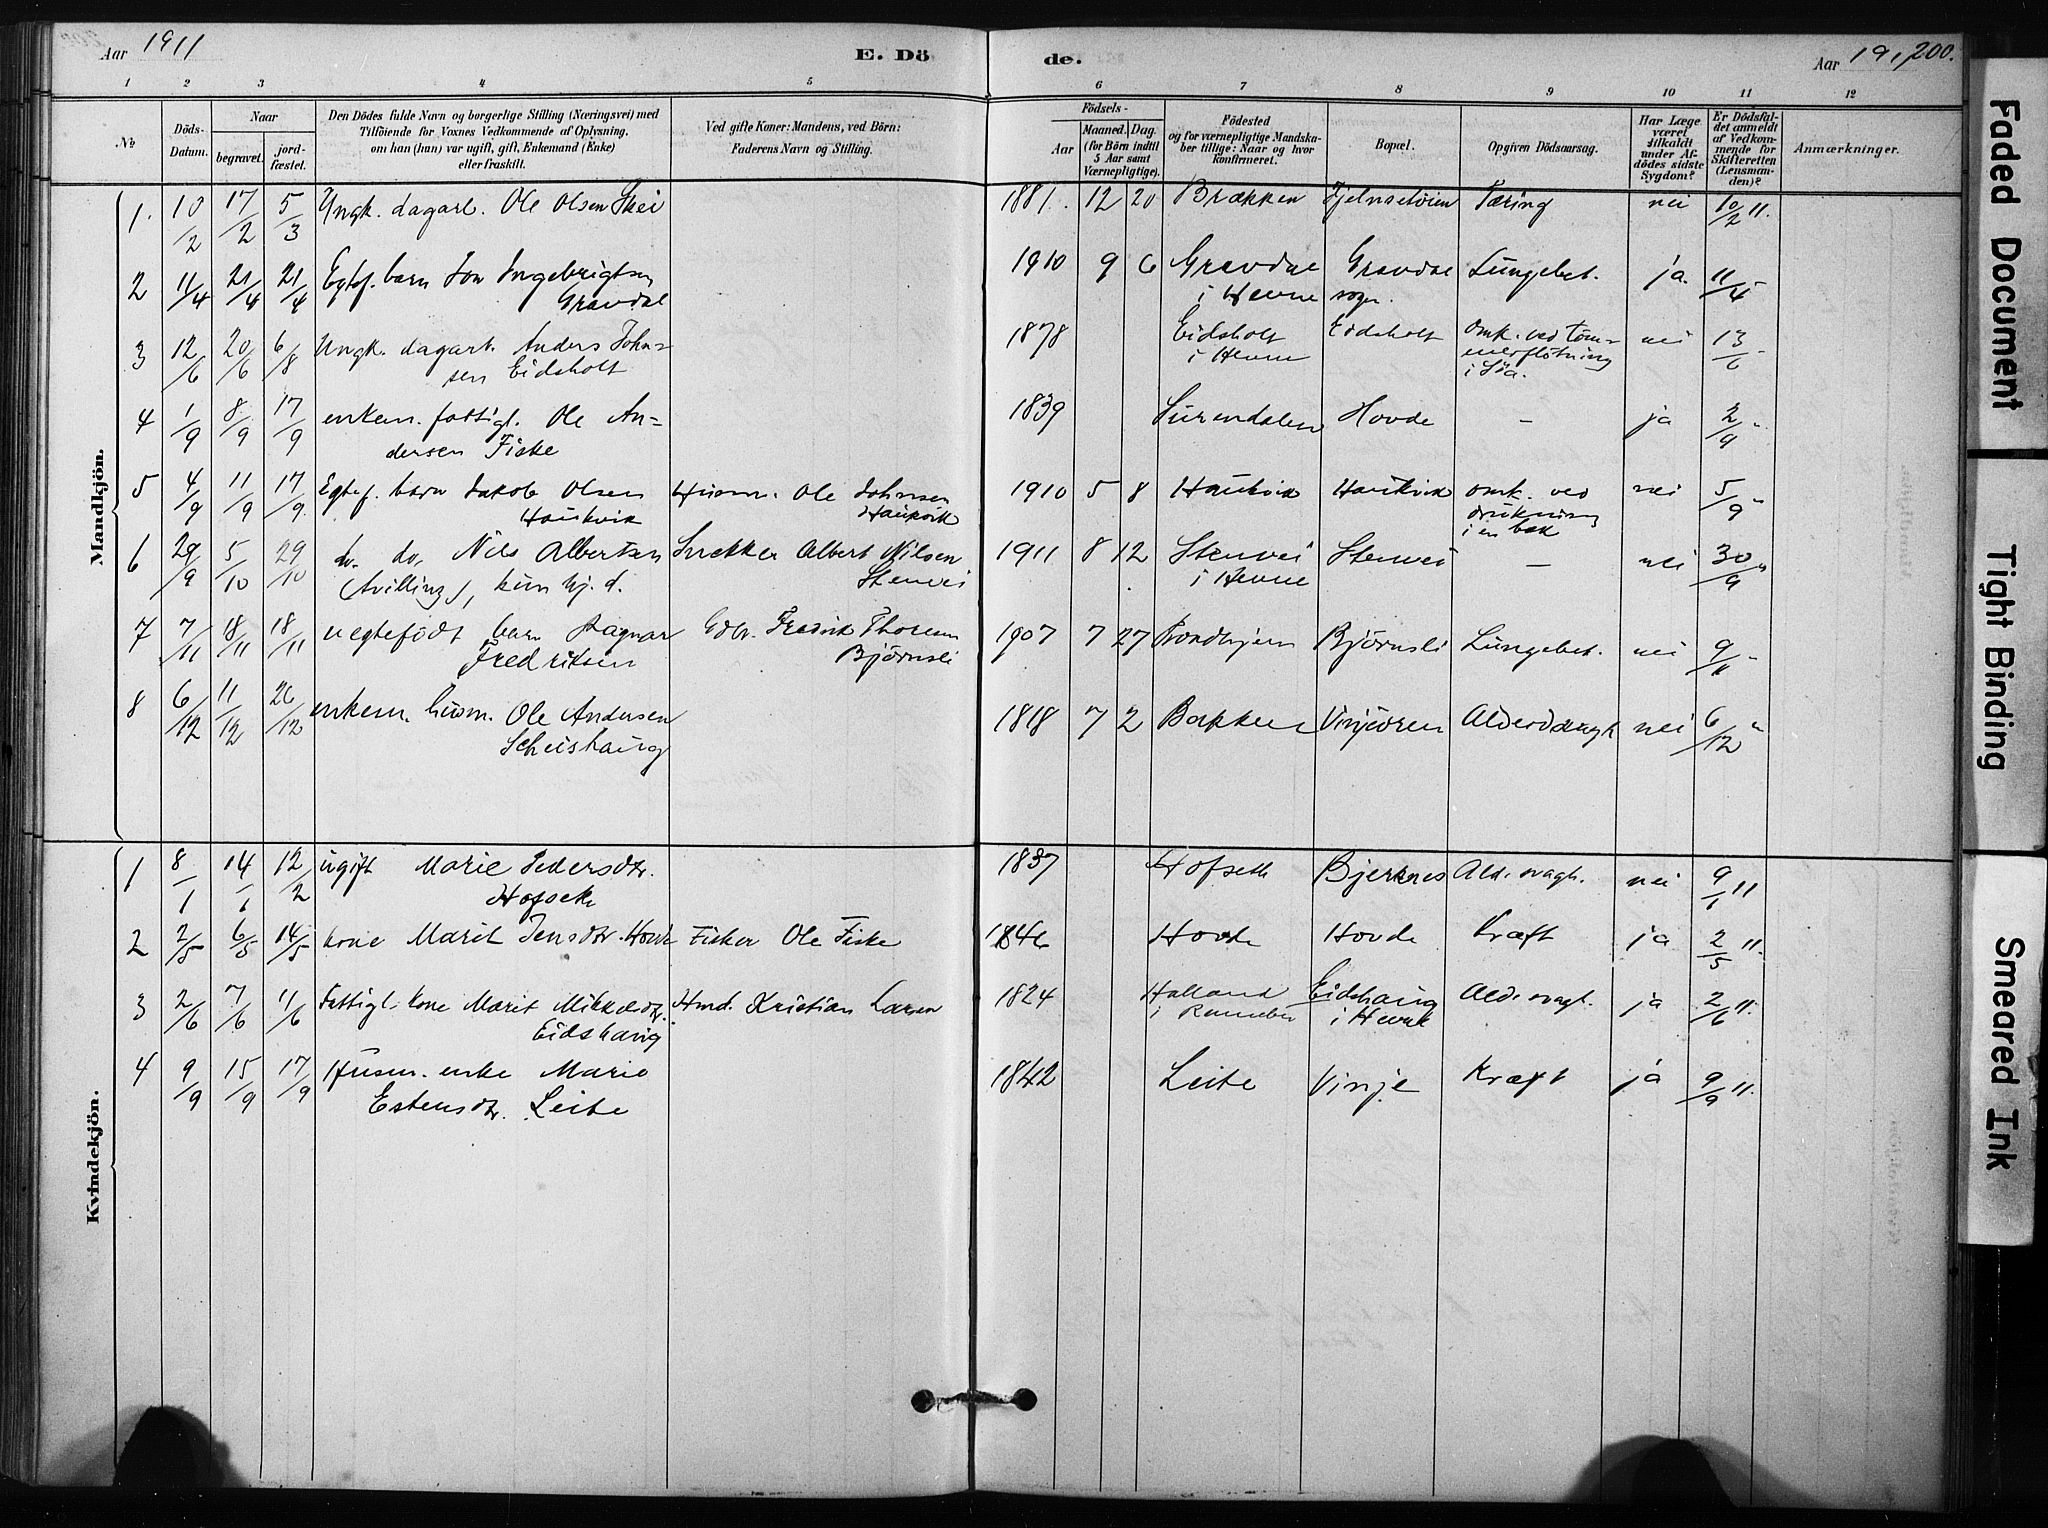 Aar 1911 E. Dö
1 2 3 4 5
№ Döds-Datum. Naar begravet. jordfæstet. Den Dödes fulde Navn og borgerlige Stilling (Næringsvei) med Tilföiende for Voxnes Vedkommende af Oplysning, om han (hun) var ugift, gift, Enkemand (Enke) eller fraskilt. Ved gifte Koner: Mandens, ved Börn: Faderens Navn og Stilling.
de. Aar 191 200.
6 7 8 9 10 11 12
Födsels- Aar Maaned. Dag. (for Börn indtil 5 Aar samt Værnepligtige). Födested og for værnepligtige Mandskaber tillige: Naar og hvor konfirmeret. Bopæl. Opgiven Dödsaarsag. Har Læge været tilkaldt under Afdödes sidste Sygdom? Er Dödsfaldet anmeldt af Vedkommende for Skifteretten (Lensmanden)? Anmærkninger.
Mandkjön.
1. 10/2 17/2 5/3 Ungk. dagarb. Ole Olsen Skei 1881. 12 20 Brækken Fjelnsetöien Tæring nei 10/2 11.
2 11/4 21/4 21/4 Egtef. barn Jon Ingebrigtsen 1910 9 6 Gravdal Gravdal Lungebet. ja. 11/4
Gravdal i Hevne sogn.
3 12/6 20/6 6/8 Ungk. dagarb. Anders John- 1878 Eidsholt Eidsholt Omk. ved töm- nei 13/6 "
sen Eidsholt i Hevne merflötning
i Söa.
4 1/9 8/9 17/9 enkem. fattigl. Ole An- 1839 Surendalen Hovde – ja 2/9 "
dersen Fiske
5 4/9 11/9 17/9 Egtef. barn Jakob Olsen Husm. Ole Johnsen 1910 5 8 Haukvik Haukvik omk. ved nei 5/9 "
Haukvik Haukvik drukning
i en bæk
6 29/9 5/10 29/10 do. do. Nils Albertsen Snekker Albert Nilsen 1911 8 12 Stenvei Stenvei – nei 30/9 "
(tvilling), kun hj. d. Stenvei i Hevne
7 7/11 18/11 18/11 uegtefödt barn Ragnar Gdbr. Fredrik Thoresen 1907 7 27 Trondhjem Björnsli Lungebet. nei 9/11 "
Fredriksen Björnsli
8 6/12 11/12 26/12 enkem. husm. Ole Andersen 1818 7 2 Bakken Vinjeören Alderdsvagh. nei 6/12 "
Scheishaug
Kvindekjön.
1 8/1 14/1 12/2 ugift Marie Pedersdtr. 1837 Hofseth Bjerknes Ald. svagh. nei 9/1 11
Hofseth
2 2/5 6/5 14/5 kone Marit Jensdtr. Hovde Fisker Ole Fiske 1846 Hovde Hovde Kræft ja 2/5 11.
3 2/6 7/6 11/6 Fattigl. kone Marit Mikkelsdtr. Hmd. Kristian Larsen 1824 Halland Eidshaug Ald. svagh. ja 2/6 11.
Eidshaug i Rennebu i Hevne
4 9/9 15/9 17/9 Husm. enke Marie 1842 Leite Vinje Kræft ja 9/9 11.
Estensdtr. Leite
Faded Document
Tight Binding
Smeared Ink